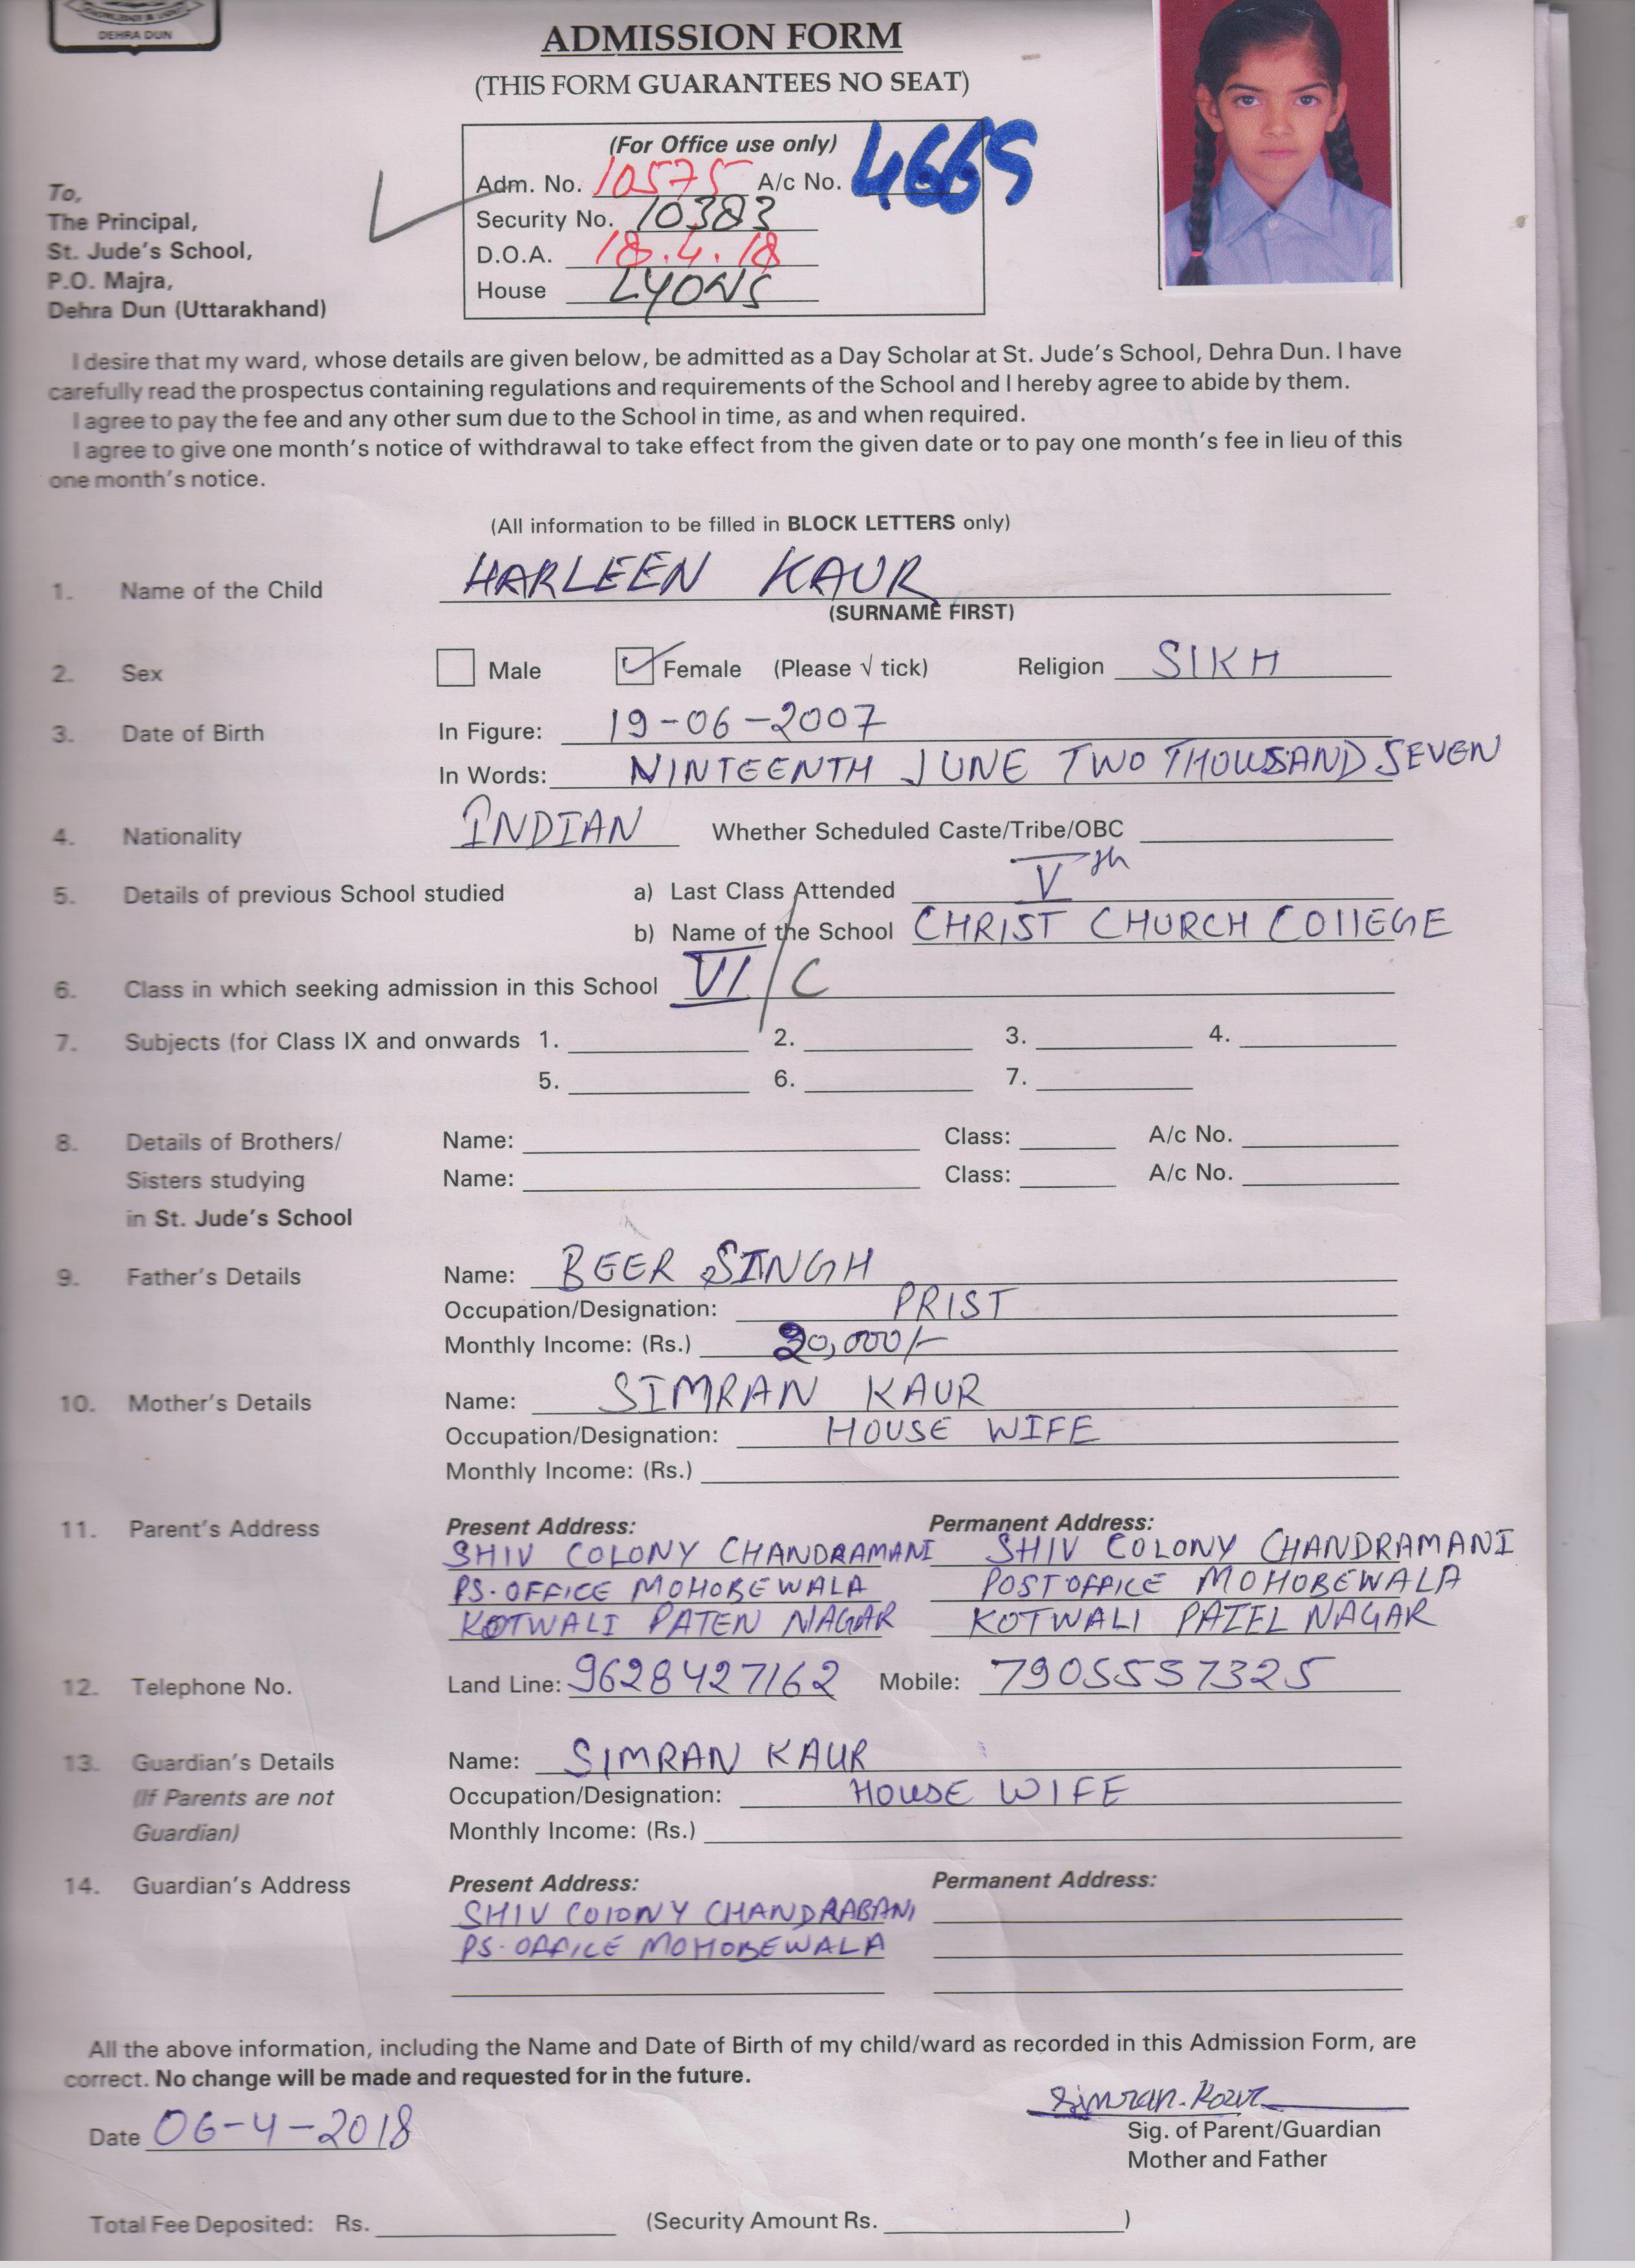 DEHRA DUN
ADMISSION FORM
(THIS FORM GUARANTEES NO SEAT)
(For Office use only)
Adm. No. 10575 A/c No. 4665
Security No. 10383
D.O.A. 18.4.18
House LYONS
To,
The Principal,
St. Jude's School,
P.O. Majra,
Dehra Dun (Uttarakhand)
I desire that my ward, whose details are given below, be admitted as a Day Scholar at St. Jude's School, Dehra Dun. I have
carefully read the prospectus containing regulations and requirements of the School and I hereby agree to abide by them.
I agree to pay the fee and any other sum due to the School in time, as and when required.
I agree to give one month's notice of withdrawal to take effect from the given date or to pay one month's fee in lieu of this
one month's notice.
(All information to be filled in BLOCK LETTERS only)
1. Name of the Child HARLEEN KAUR
(SURNAME FIRST)
2. Sex Male Female (Please √ tick) Religion SIKH
3. Date of Birth In Figure: 19-06-2007
In Words: NINTEENTH JUNE TWO THOUSAND SEVEN
4. Nationality INDIAN Whether Scheduled Caste/Tribe/OBC
5. Details of previous School studied a) Last Class Attended Vth
b) Name of the School CHRIST CHURCH COllEGE
6. Class in which seeking admission in this School VI/C
7. Subjects (for Class IX and onwards 1. 2. 3. 4.
5. 6. 7.
8. Details of Brothers/ Name: Class: A/c No.
Sisters studying Name: Class: A/c No.
in St. Jude's School
9. Father's Details Name: BEER SINGH
Occupation/Designation: PRIST
Monthly Income: (Rs.) 20,000/-
10. Mother's Details Name: SIMRAN KAUR
Occupation/Designation: HOUSE WIFE
Monthly Income: (Rs.)
11. Parent's Address Present Address: Permanent Address:
SHIV COLONY CHANDRAMANI SHIV COLONY CHANDRAMANI
PS.OFFICE MOHOBEWALA POST OFFICE MOHOBEWALA
KOTWALI PATEN NAGAR KOTWALI PATEL NAGAR
12. Telephone No. Land Line: 9628427162 Mobile: 7905557325
13. Guardian's Details Name: SIMRAN KAUR
(If Parents are not Occupation/Designation: HOUSE WIFE
Guardian) Monthly Income: (Rs.)
14. Guardian's Address Present Address: Permanent Address:
SHIV COlONY CHANDRABANI
PS.OFFICE MOHOBEWALA
All the above information, including the Name and Date of Birth of my child/ward as recorded in this Admission Form, are
correct. No change will be made and requested for in the future.
Simran.Kaur
Date 06-4-2018 Sig. of Parent/Guardian
Mother and Father
Total Fee Deposited: Rs. (Security Amount Rs. )